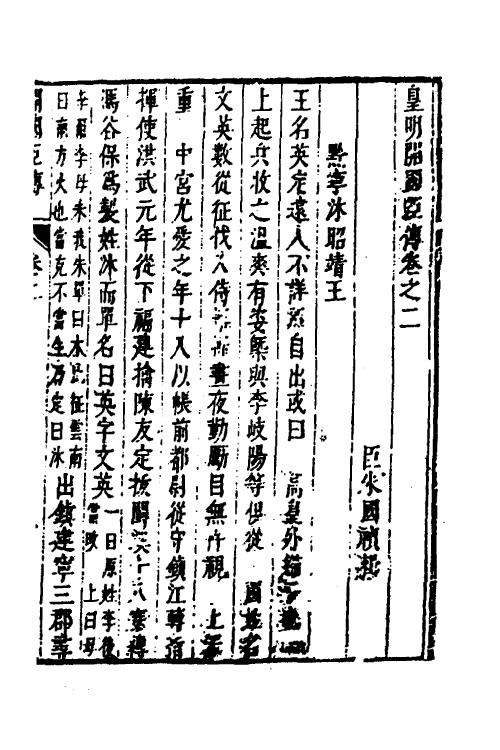 皇明開國臣傳卷之二
臣朱國禎輯
黔寧沐昭靖王
王名英定遠人不詳所自出或曰 高皇外
上起兵收之溫爽有姿槩與李岐陽等但從 國姓名
文英數從征伐入侍 晝夜勤勵目無旁視 上
重 中宮尤愛之年十八以帳前都尉從守鎮江轉指
揮使洪武元年從下福建擒陳友定 十八寨
馮谷保爲製姓沐而單名曰英字文英 一曰原姓李後當改 上曰毋
李爾李毋朱我朱單曰木 征雲南曰南方火也當克不當生乃定曰沐 出鎮建寧三郡
開國臣傳 卷二